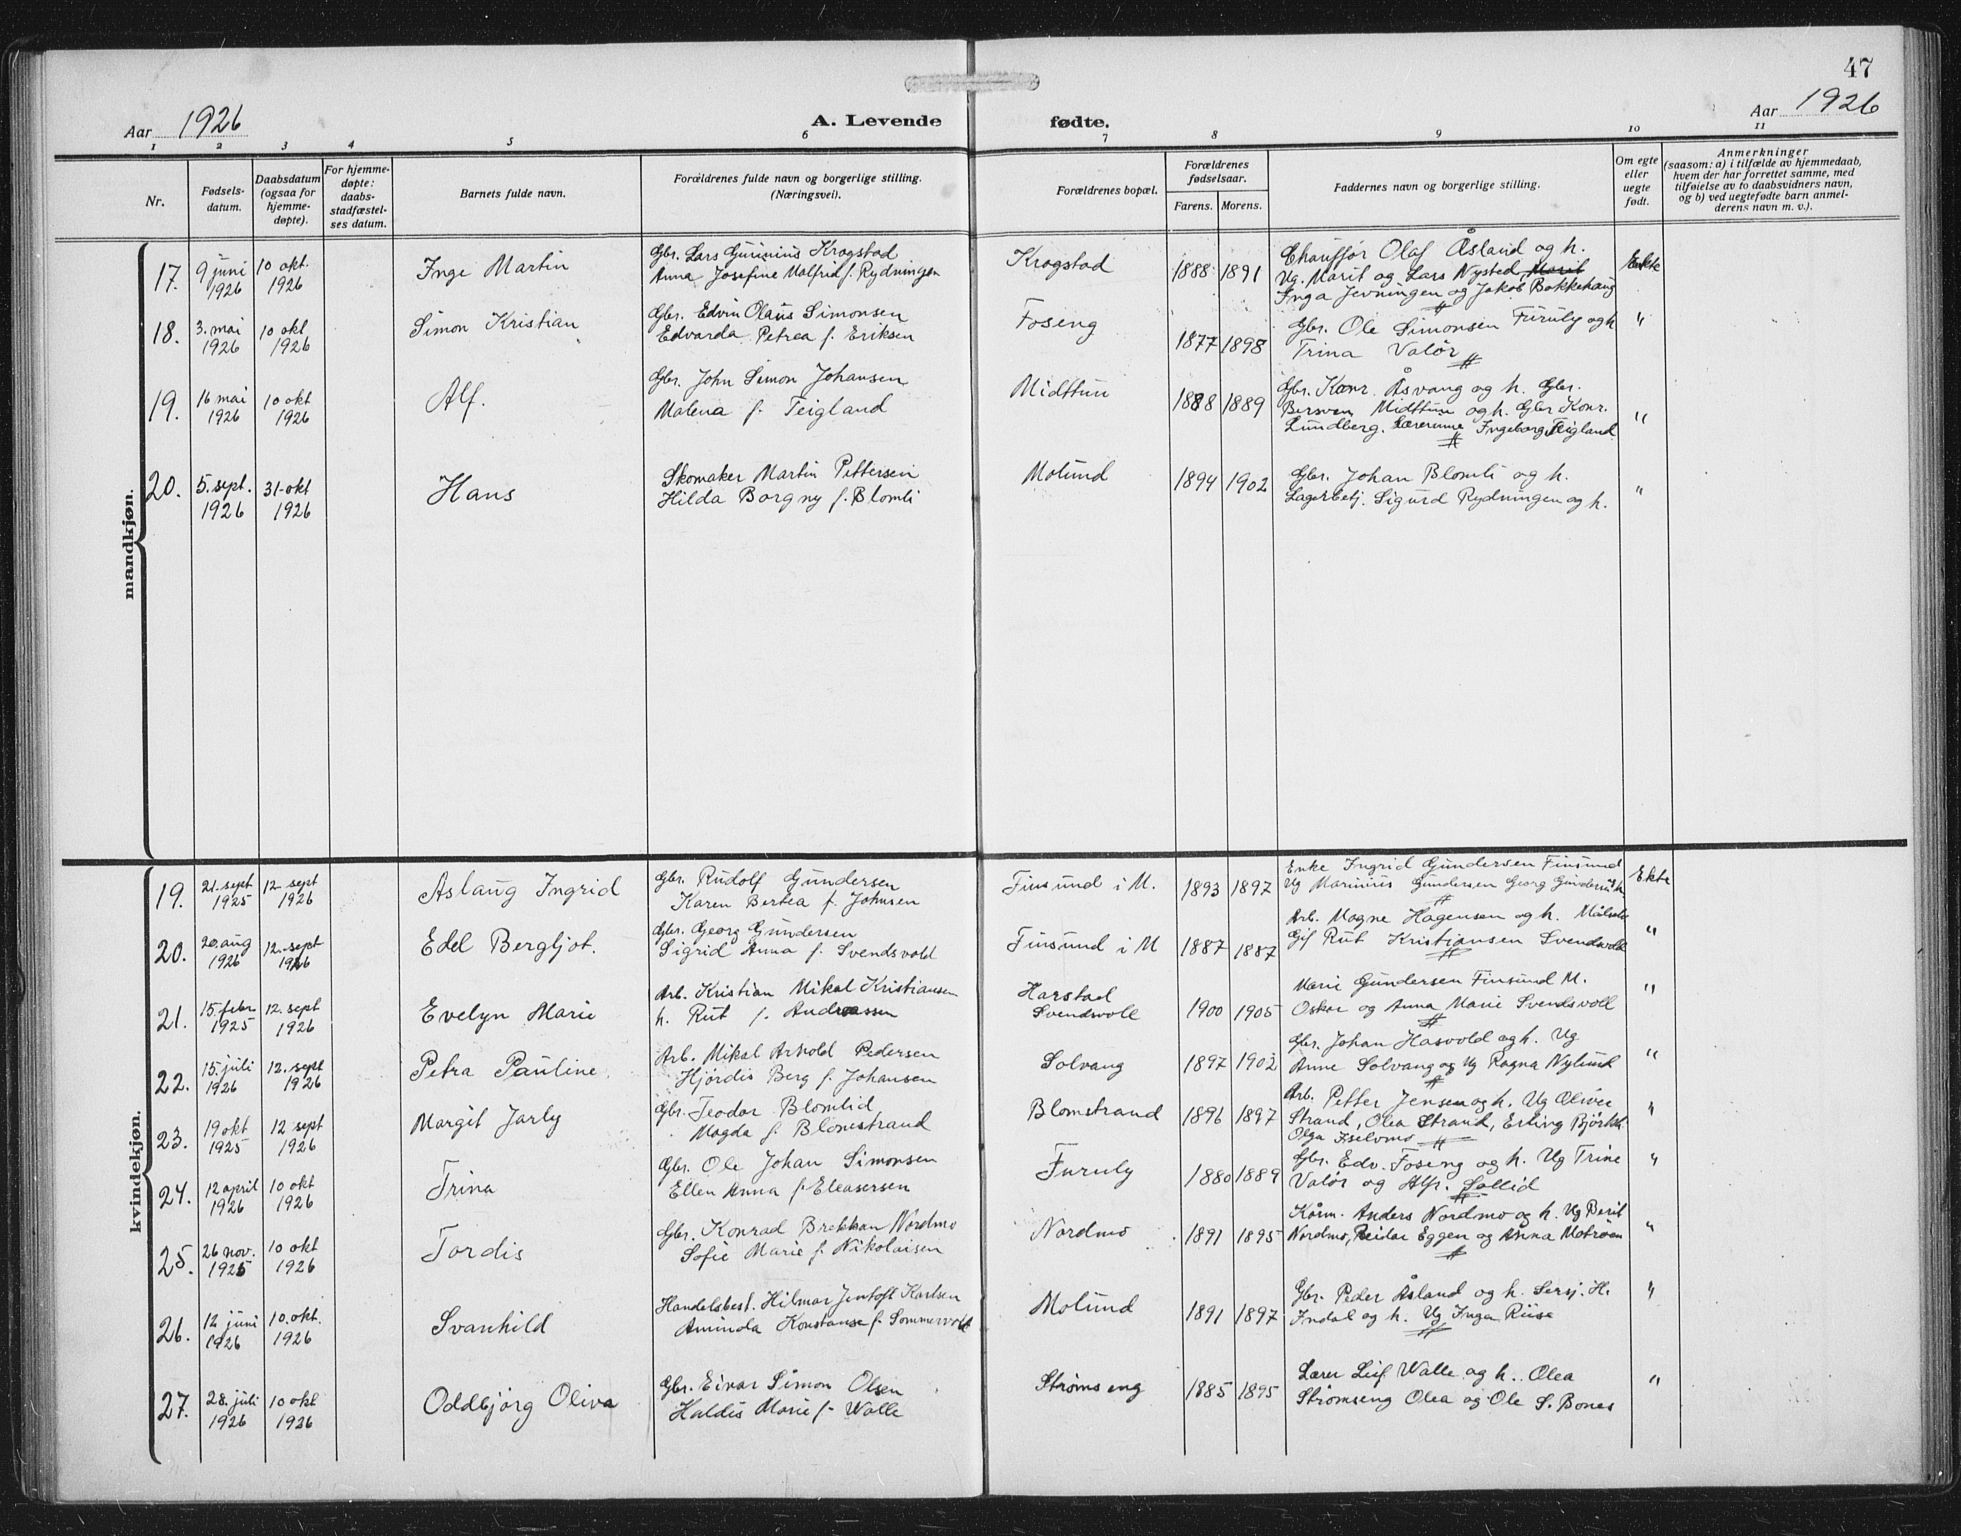 47
Aar 1926
A. Levende fødte.
Aar 1926
1 2 3 4 5 6 7 8 9 10 11
Nr.
Fødsels-
datum.
Daabsdatum
(ogsaa for
hjemme-
døpte).
For hjemme-
døpte:
daabs-
stadfæstel-
ses datum.
Barnets fulde navn.
Forældrenes fulde navn og borgerlige stilling.
(Næringsvei).
Forældrenes bopæl.
Forældrenes
fødselsaar.
Farens. Morens.
Faddernes navn og borgerlige stilling.
Om egte
eller
uegte
født.
Anmerkninger
(saasom: a) i tilfælde av hjemmedaab,
hvem der har forrettet samme, med
tilføielse av to daabsvidners navn,
og b) ved uegtefødte barn anmel-
derens navn m. v.).
mandkjøn.
17. 9 juni 1926 10 okt. 1926 Inge Martin
Gbr. Lars Guninius Krogstad
Anna Josefine Malfrid f. Rydningen
Krogstad 1888 1891
Chauffør Olaf Åsland og h.
Ug. Marit og Lars Nysted, Marit
Inga Jevningen og Jakob Bakkehaug
Ekte
18. 3. mai 1926 10 okt 1926 Simon Kristian
Gbr. Edvin Olaus Simonsen
Edvarda Petrea f. Eriksen
Foseng 1877 1898
Gbr. Ole Simonsen Furuly og h
Trina Valør
"
19. 16 mai 1926 10 okt 1926 Alf.
Gbr. John Simon Johansen
Malena f. Teigland
Midttun 1888 1889
Gbr. Konr. Åsvang og h. Gbr.
Bersven Midttun og h. Gbr Konr.
Lundberg. Lærerinne Ingeborg Teigland
"
20. 5. sept. 1926 31. okt 1926 Hans
Skomaker Martin Pettersen
Hilda Borgny f. Blomli
Molund 1894 1902
Gbr. Johan Blomli og h.
Lagerbetj. Sigurd Rydningen og h.
"
kvindekjøn.
19. 21. sept 1925 12. sept 1926 Aslaug Ingrid
Gbr. Rudolf Gundersen
Karen Bertea f. Johnsen
Finsund i M. 1893 1897
Enke Ingrid Gundersen Finsund
Ug Marinius Gundersen Georg Gundersen
Ekte
20. 20. aug 1926 12. sept 1926 Edel Bergljot.
Gbr. Georg Gundersen
Sigrid Anna f. Svendsvold
Finsund i M 1887 1887
Arb. Magne Hagensen og h.
Gif Rut Kristiansen Svendsvold
"
21. 15. febr 1925 12. sept 1926 Evelyn Marie
Arb. Kristian Mikal Kristiansen
h. Rut f. Andreassen
Harstad
Svendsvoll
1900 1905
Marie Gundersen Finsund M.
Oskar og Anna Marie Svendsvoll
"
22. 15. juli 1926 12. sept 1926 Petra Pauline
Arb. Mikal Arnold Pedersen
Hjördis Berg f. Johansen
Solvang 1897 1902
Gbr. Johan Hasvold og h. Ug
Anne Solvang og Ug Ragna Nylund
"
23. 19 okt 1925 12 sept 1926 Margit Jarly
Gbr. Teodor Blomlid
Magda f. Blomstrand
Blomstrand 1896 1897
Arb. Petter Jensen og h. Ug Oliver
Strand, Olea Strand, Erling
Olga
"
24. 12 april 1926 10 okt 1926 Trina
Gbr. Ole Johan Simonsen
Ellen Anna f. Eleasersen
Furuly 1880 1889
Gbr. Edv. Foseng og h. Ug Trine
Valør og Alfr. Sollid
"
25. 26 nov. 1925 10 okt 1926 Tordis
Gbr. Konrad Brekkan Nordmo
Sofie Marie f. Nikolaisen
Nordmo 1891 1895
Anders Nordmo og h. Ug Berit
Nordmo, Reidar Eggen og Anna
"
26. 12 juni 1926 10. okt. 1926 Svanhild
Handelsbest. Hilmar Jentoft Karlsen
Aminda Konstanse f. Sommervold
Molund 1891 1897
Gbr. Peder Åsland og h. Sersj. H.
Indal og h. Ug Inga Riise
"
27. 28. juli 1926 10 okt 1926 Oddbjörg Oliva
Gbr. Einar Simon Olsen
Haldis Marie f. Walle
Strømseng 1885 1895
Lærer Leif Walle og h. Olea
Strømseng Olea og Ole S. Bones
"